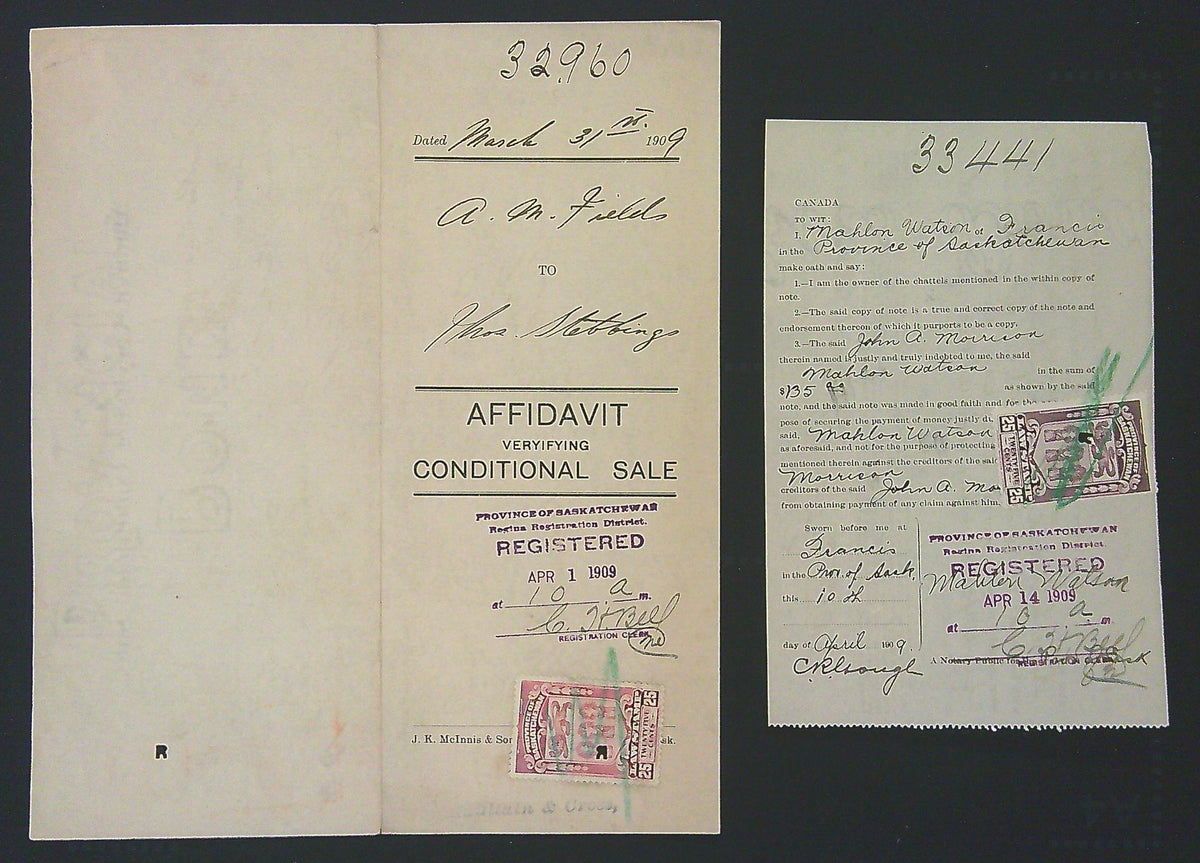 32960
Dated March 31st. 1909
A. M. Fields
TO
Thos. Stebbings
AFFIDAVIT
VERYIFYING
CONDITIONAL SALE
PROVINCE OF SASKATCHEWAN
Regina Registration District.
REGISTERED
APR 1 1909
at 10 a m.
C. H. Bell
REGISTRATION CLERK
PROVINCE OF SASKATCHEWAN
LAW STAMP
25 TWENTY FIVE CENTS 25
J. K. McInnis & Son sk.
R R
33441
CANADA
TO WIT:
I, Mahlon Watson of Francis
in the Province of Saskatchewan
make oath and say:
1.—I am the owner of the chattels mentioned in the within copy of
note.
2.—The said copy of note is a true and correct copy of the note and
endorsement thereon of which it purports to be a copy.
3.—The said John A. Morrison
therein named is justly and truly indebted to me, the said
Mahlon Watson in the sum of
$135 as shown by the said
note, and the said note was made in good faith and for the
pose of securing the payment of money justly du
said, Mahlon Watson
as aforesaid, and not for the purpose of protecting
mentioned therein against the creditors of the said
Morrison
creditors of the said John A. Mo
from obtaining payment of any claim against him.
25 TWENTY FIVE CENTS 25
LAW STAMP
PROVINCE OF SASKATCHEWAN
R
Sworn before me at
Francis
in the Prov. of Sask
this 10th
day of April 1909
PROVINCE OF SASKATCHEWAN
Regina Registration District.
REGISTERED
Mahlon Watson
APR 14 1909
at 10 a m.
C. H. Bell
REGISTRATION CLERK
A Notary Public for